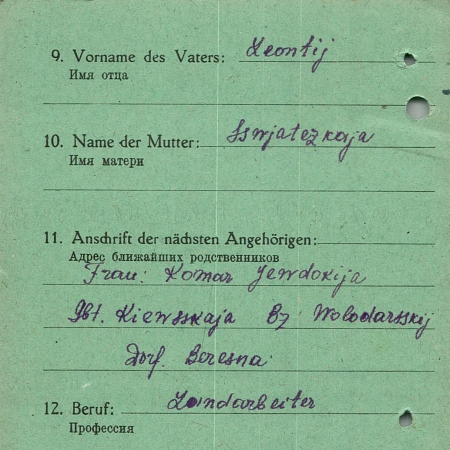 9. Vorname des Vaters: Leontij
Имя отца
10. Name der Mutter: Sswjatezkaja
Имя матери
11. Anschrift der nächsten Angehörigen:
Адрес ближайших родственников
Frau: Komar Jewdokija
Gbt. Kiewsskaja Bz Wolodarsskij
Dorf. Beresna
12. Beruf: Landarbeiter
Профессия